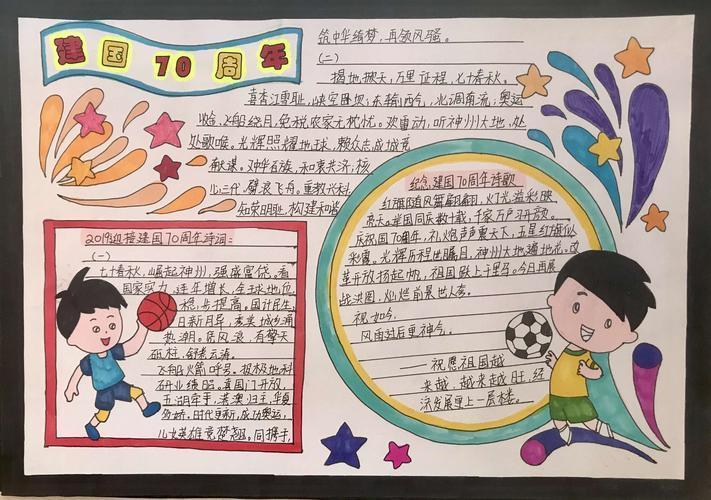 建国70周年
2019迎接建国70周年诗词:
(一)
七十春秋,崛起神州,强盛富饶。看
国家实力,连年增长,全球地位
稳步提高。国计民生
日新月异,老实城乡涌
热潮。居风浪,有擎天
砥柱,舒卷云涛。
飞船火箭呼号。极极地科
研业绩昭。喜国门开放,
五湖牵手,港澳归主,华夏
多娇。时代更新,成功奥运,
儿女英雄竞梦翘。同携手,
筑中华绮梦,再领风骚。
(二)
揭地掀天,万里征程,七十春秋。
喜香江雪耻,
东输西气,北调南流,奥运
飞船绕月,免税农家无忧忧。欢重动,听神州大地,处
处歌喉。光辉照耀地球,赖众志成城竞
献谋。对中华百族,和衷共济,核
心三代,劈浪飞舟。重教兴科
知荣明耻,构建和谐
纪念建国70周年诗歌
红旗随风舞翩翩,灯光溢彩映
亮天。举国同庆数十载,千家万户习开颜。
庆祝国70周年,礼炮声声震天下,五星红旗似
彩霞。光辉历程世瞩目,神州大地遍地花。改
革开放扬起帆,祖国殿上千里马。今日再展
宏图,灿烂前景世人夸。
祝如今,
风雨过后更神气。
——祝愿祖国越
来越,越来越旺,经
济发展更上一层楼。